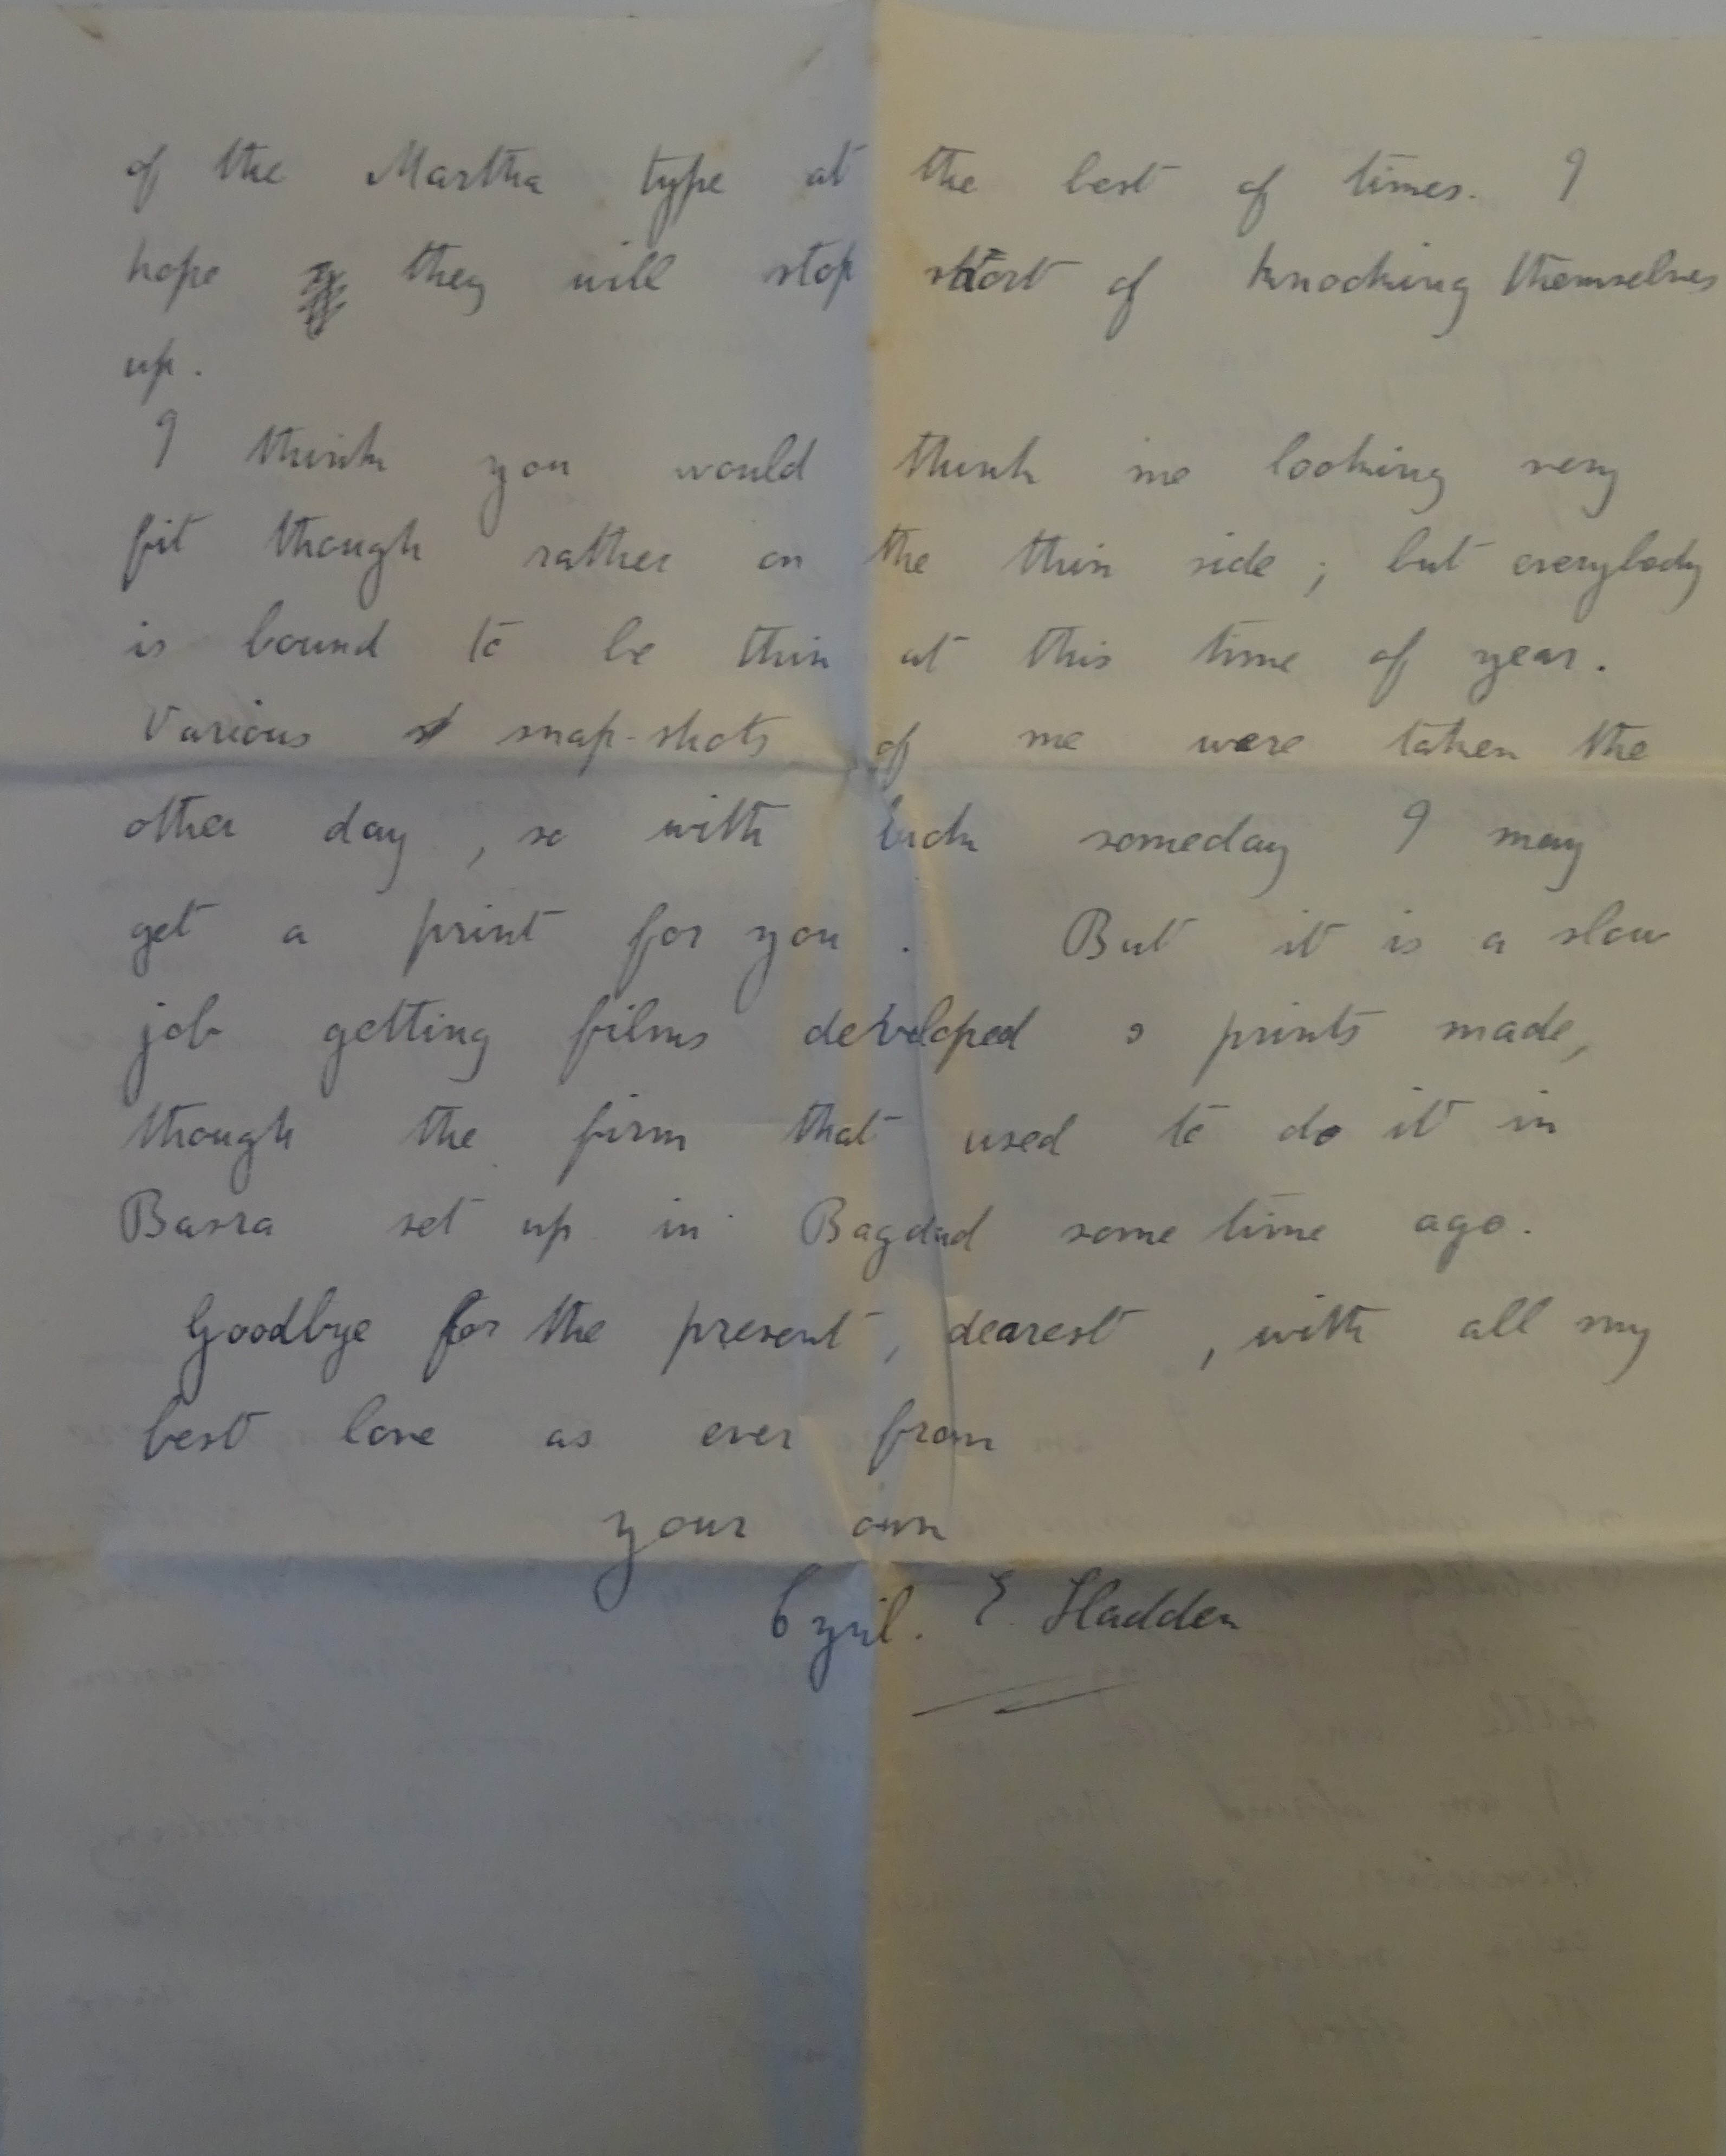 of the Martha type at the best of times. I
hope they will stop short of knocking themselves
up.
I think you would think me looking very
fit though rather on the thin side ; but everybody
is bound to be thin at this time of year.
Various snap-shots of me were taken the
other day , so with luck someday I may
get a print for you . But it is a slow
job getting films developed & prints made,
though the firm that used to do it in
Basra set up in Bagdad some time ago.
Goodbye for the present , dearest , with all my
best love as ever from
your own
Cyril. E. Hadden